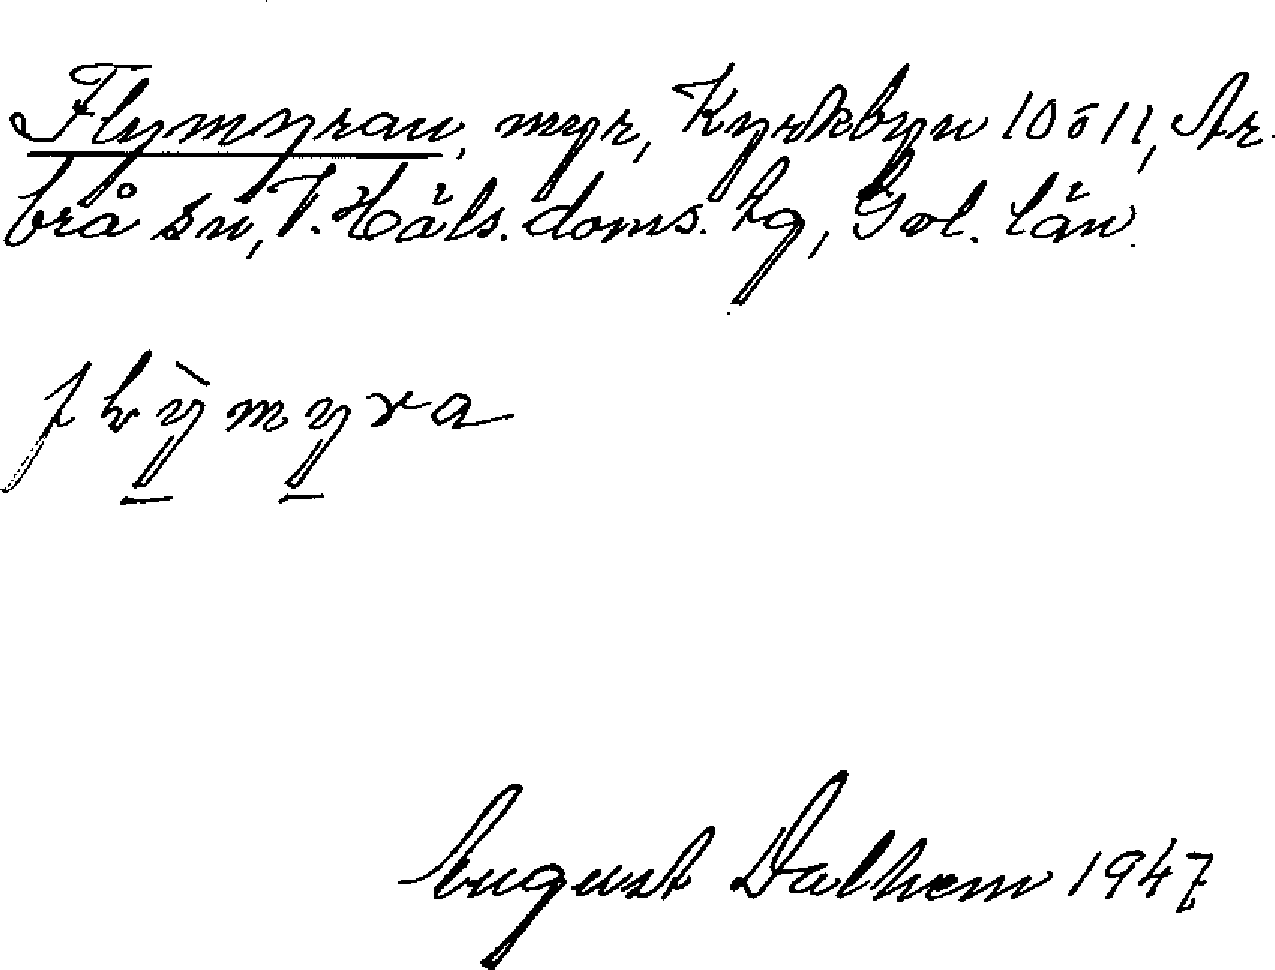 Flymyran, myr, Kyrkbyn 10 ö 11, Ar-
brå sn, V. Häls. doms. hg, Gvl. län.
flỳmyra
August Dalhem 1947